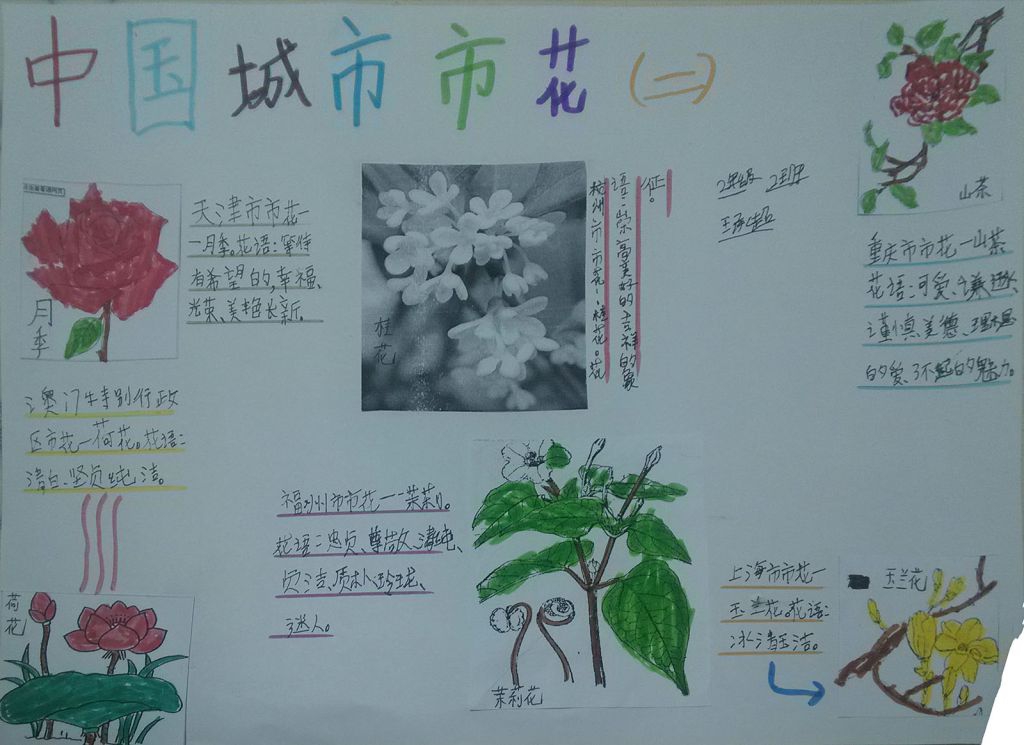 中国城市市花(二)
山茶
2年级 2班
天津市市花一
一月季。花语:等待
有希望的,幸福、
光荣、美艳长新。
月季
桂花
杭州市市花:桂花。花
语:崇高美好的吉祥的象
征。
重庆市市花一山茶
花语:可爱、谦逊、
谨慎美德、理想
的爱、了不起的魅力。
澳门特别行政
区市花一荷花。花语:
清白、坚贞纯洁。
荷花
福州市市花一一茉莉。
花语:忠贞、尊敬、清纯、
贞洁、质朴、玲珑、
迷人。
茉莉花
上海市市花一
玉兰花。花语:
冰清玉洁。
玉兰花